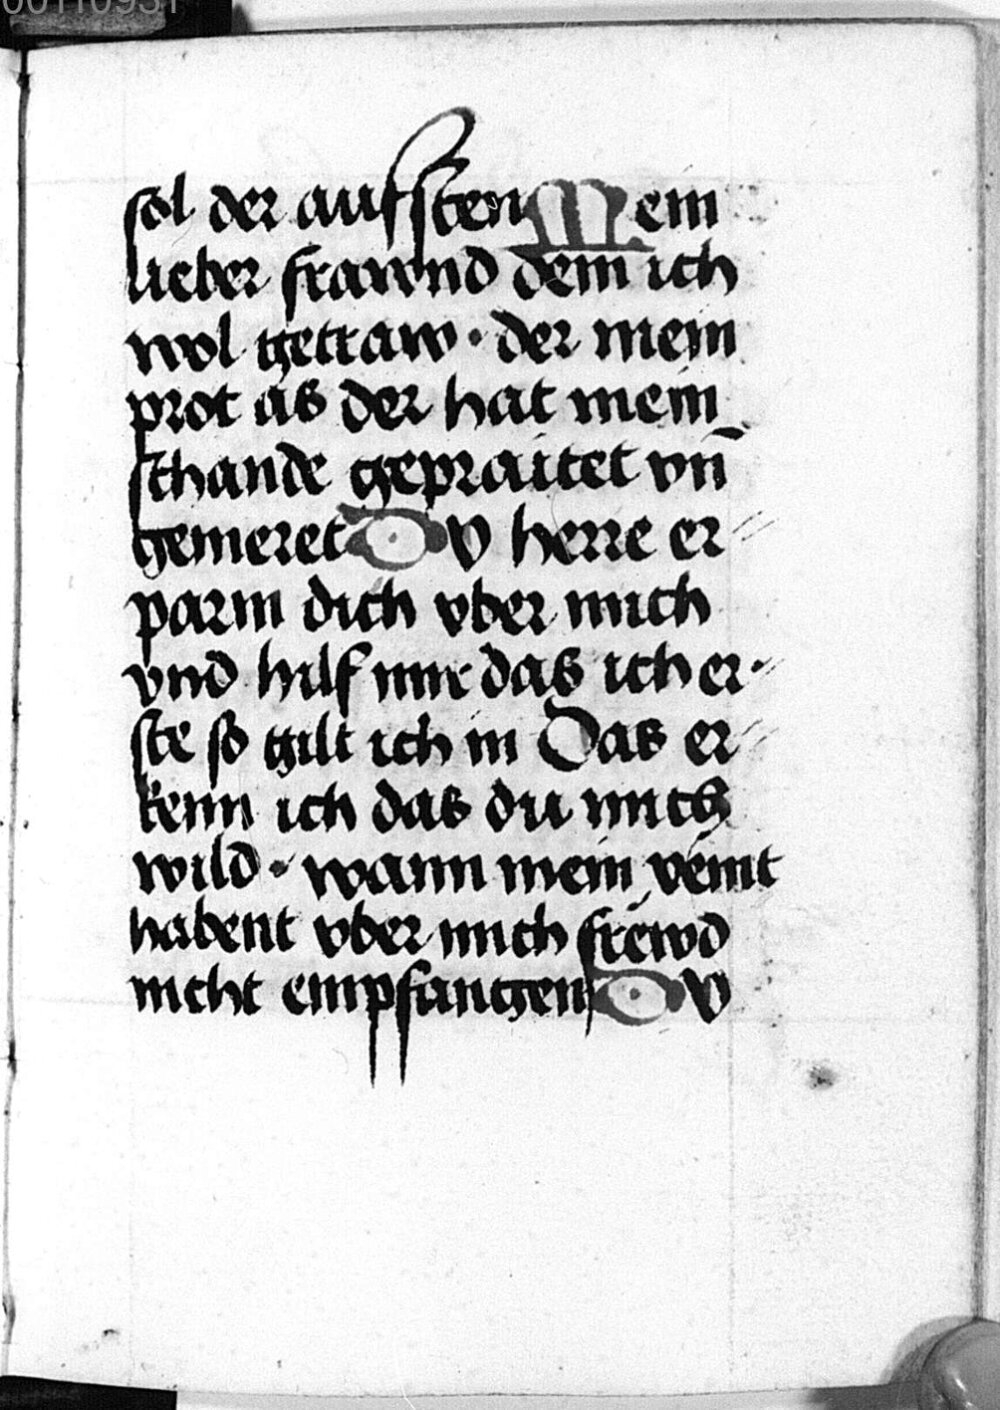 00110931
sol der aufsten Mein
lieber frawnd dem ich
wol getraw · der mein
prot as der hat mein
schande gepraitet vn̄
gemeret DV herre er⸗
parm dich vber mich
vnd hilf mir das ich er⸗
ste so gilt ich in Das er⸗
kenn ich das du mich
wild · wann mein veint
habent vber mich frewd
nicht empfangen DV